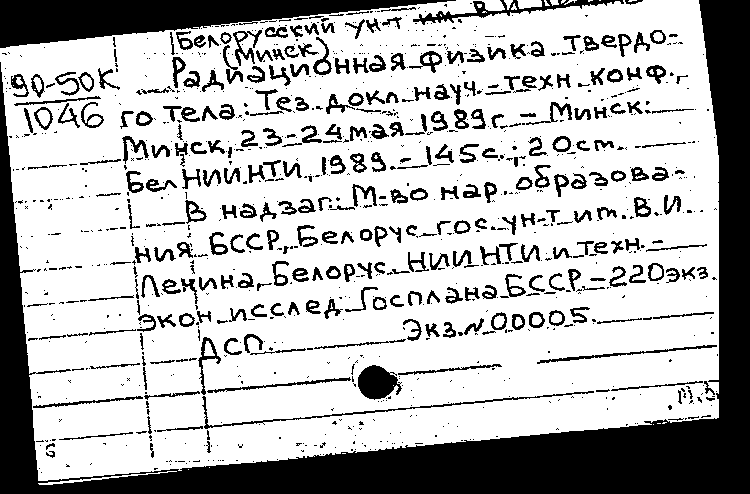 Белорусский ун-т им. В.И.
(Минск)
90-50К
1046
Радиационная физика твердо-
го тела: Тез. докл. науч.-техн. конф.,
Минск, 23-24 мая 1989г. - Минск:
БелНИИНТИ, 1989. - 145с.; 20см.
В надзаг.: М-во нар. образова-
ния БССР, Белорус. гос. ун-т им. В.И.
Ленина, Белорус. НИИ НТИ и техн.-
экон. исслед. Госплана БССР. - 220экз.
ДСП. Экз.N 00005.